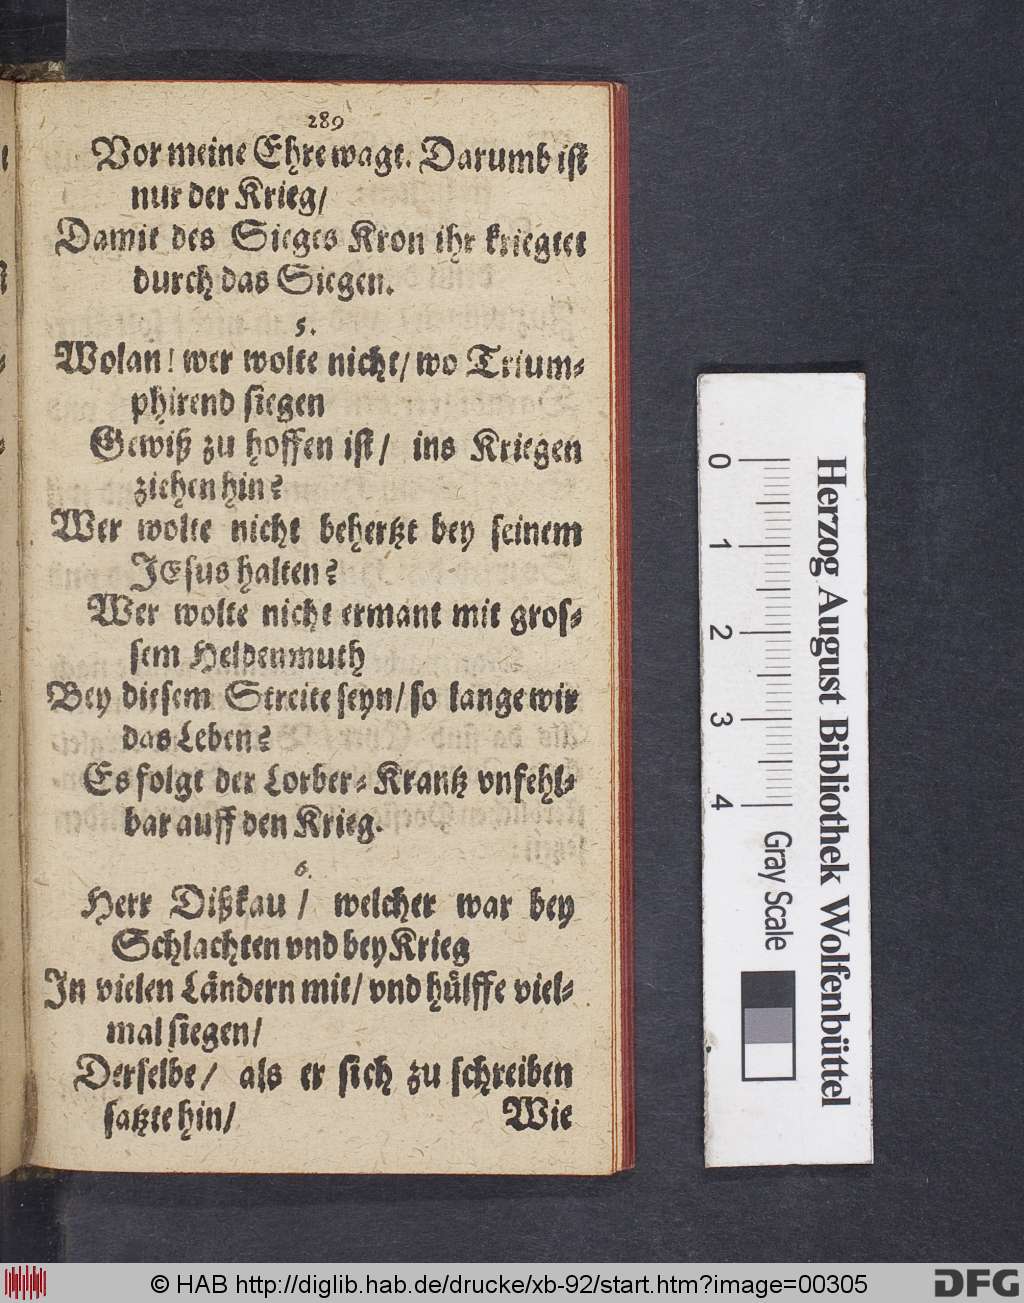 289
Vor meine Ehre wagt. Darumb ist
nur der Krieg/
Damit des Sieges Kron ihr krieget
durch das Siegen.
5.
Wolan! wer wolte nicht/ wo Trium-
phirend siegen
Gewiß zu hoffen ist/ ins Kriegen
ziehen hin?
Wer wolte nicht behertzt bey seinem
JEsus halten?
Wer wolte nicht ermant mit gros-
sem Heldenmuth
Bey diesem Streite seyn/ so lange wir
das Leben?
Es folgt der Lorber-Krantz vnfehl-
bar auff den Krieg.
6.
Herr Dißkau/ welcher war bey
Schlachten vnd bey Krieg
In vielen Ländern mit/ vnd hülffe viel-
mal siegen/
Derselbe/ als er sich zu schreiben
satzte hin/
Wie
0 1 2 3 4
Gray Scale
Herzog August Bibliothek Wolfenbüttel
© HAB http://diglib.hab.de/drucke/xb-92/start.htm?image=00305
DFG